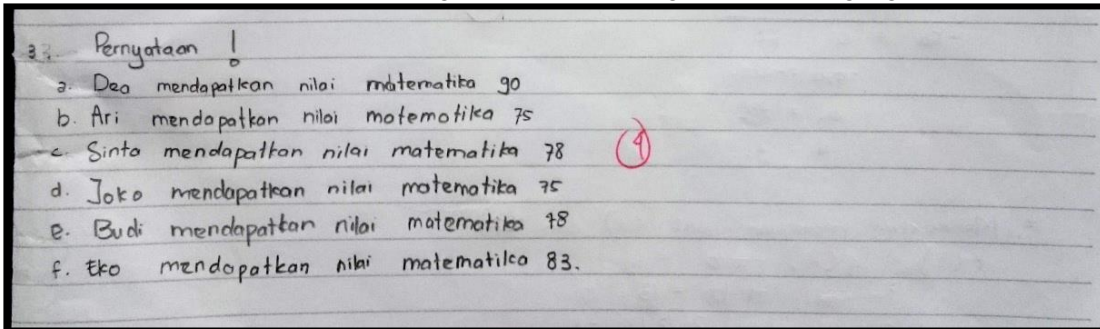 33. Pernyataan !
a. Deo mendapatkan nilai matematika 90
b. Ari mendapatkan nilai matematika 75
c. Sinta mendapatkan nilai matematika 78
d. Joko mendapatkan nilai matematika 75
e. Budi mendapatkan nilai matematika 78
f. Eko mendapatkan nilai matematika 83.
4